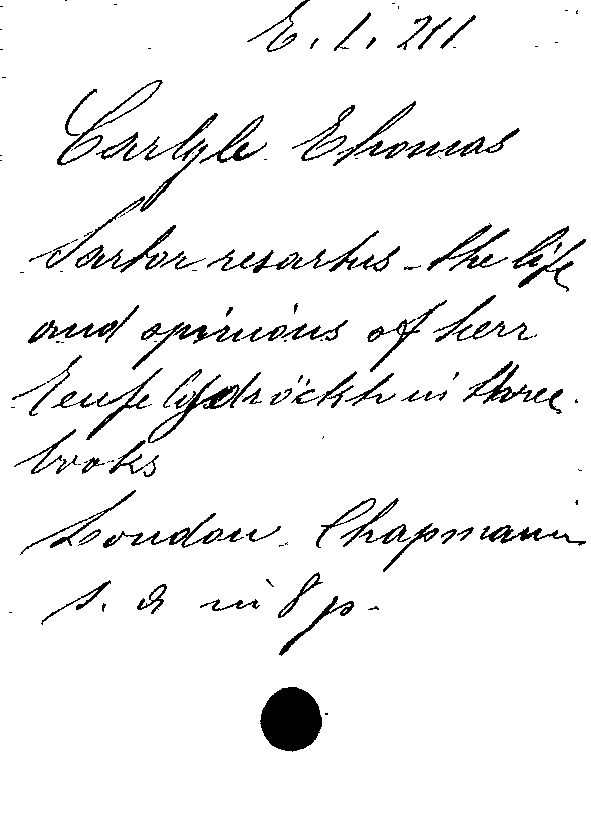 E. L. 211
Carlyle Thomas
Sartor resartus - the life
and opinions of herr
Teufelsdröckh in three
books
London. Chapmann
s. d in 8 p.